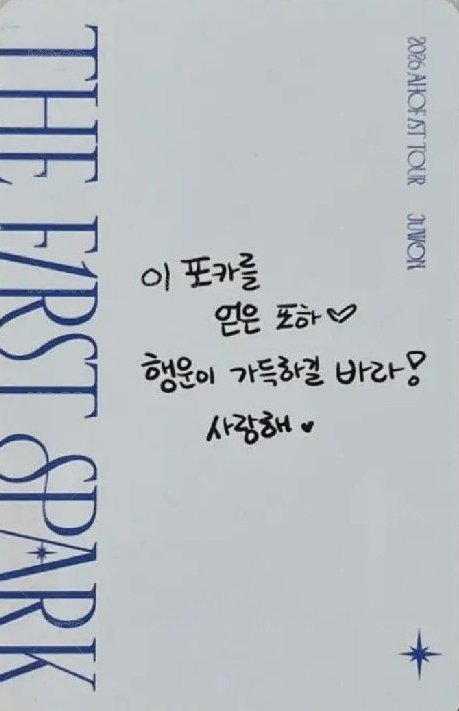 THE FIRST SPARK
2026 AHOF 1ST TOUR JUWON
이 포카를
얻은 포하♡
행운이 가득하길 바라!
사랑해♥